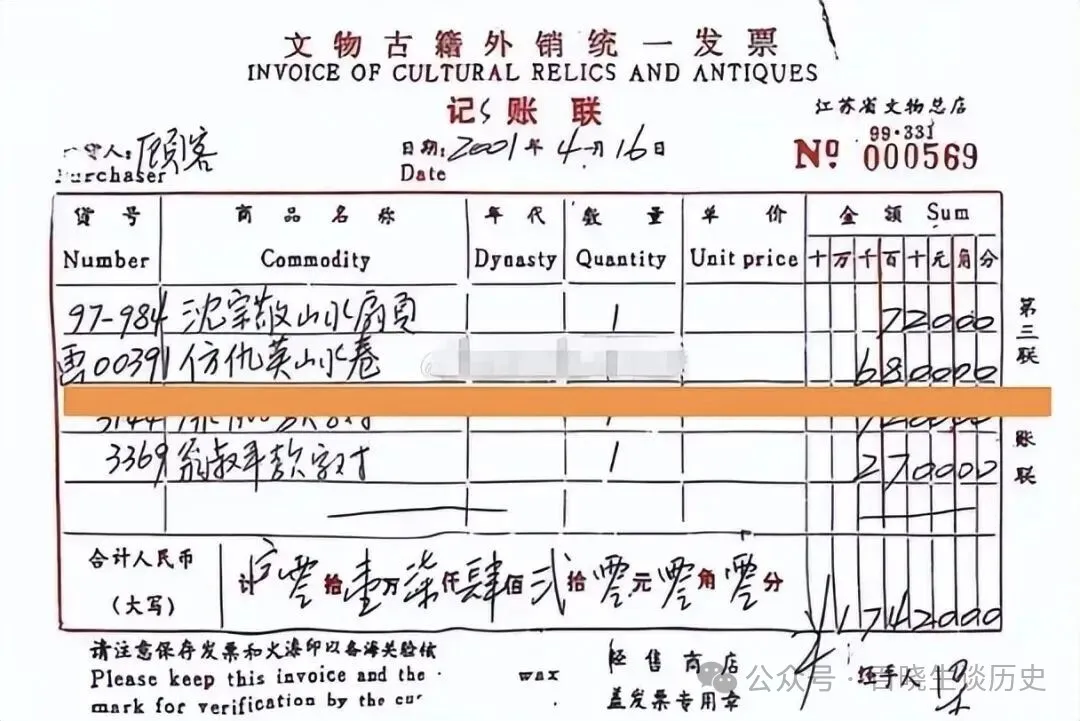 文物古籍外销统一发票
INVOICE OF CULTURAL RELICS AND ANTIQUES
记账联
江苏省文物总店
99·331
Nº 000569
人:顾客
日期:2001年4月16日
Purchaser
Date
货号 商品名称 年代 数量 单价 金额 Sum
Number Commodity Dynasty Quantity Unit price 十万千百十元角分
97-984 沈宗敬山水扇页 1 72000
雲00391 仿仇英山水卷 680000
3369 翁叔平款字对 1 270000
第三联
账联
合计人民币
(大写)
计 零拾壹万柒仟肆佰贰拾零元零角零分
1742000
请注意保存发票和火漆印以备海关验核
Please keep this invoice and the wax
mark for verification by the cu
经售商店
盖发票专用章
经手人
公众号·晋晓生谈历史